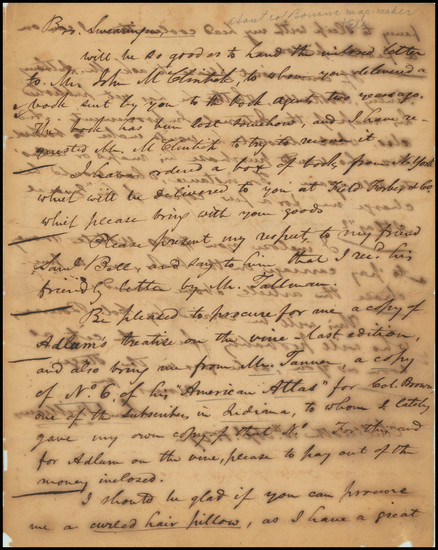 Bro. Swearingen,
will be so good as to hand the inclosed letter
to Mr. John McClintock to whom you delivered a
book sent by you to the book agents two years ago.
The book has been lost somehow, and I have re-
quested Mr. McClintock to try to recover it.
I have ordered a box of books from N. York
which will be delivered to you at Field Forbes & Co
which please bring with your goods
Please present my respects to my friend
Saml. Bell, and say to him that I recd. his
friendly letter by Mr. Tallman
Be pleased to procure for me a copy of
Adlum's treatise on the vine—last edition,
and also bring me from Mr. Tanner, a copy
of No. 6 of his "American Atlas" for Col. Brown
one of the subscribers in Indiana, to whom I lately
gave my own copy of that No. For this and
for Adlum on the vine, please to pay out of the
money inclosed.
I should be glad if you can procure
me a curled hair pillow, as I have a great